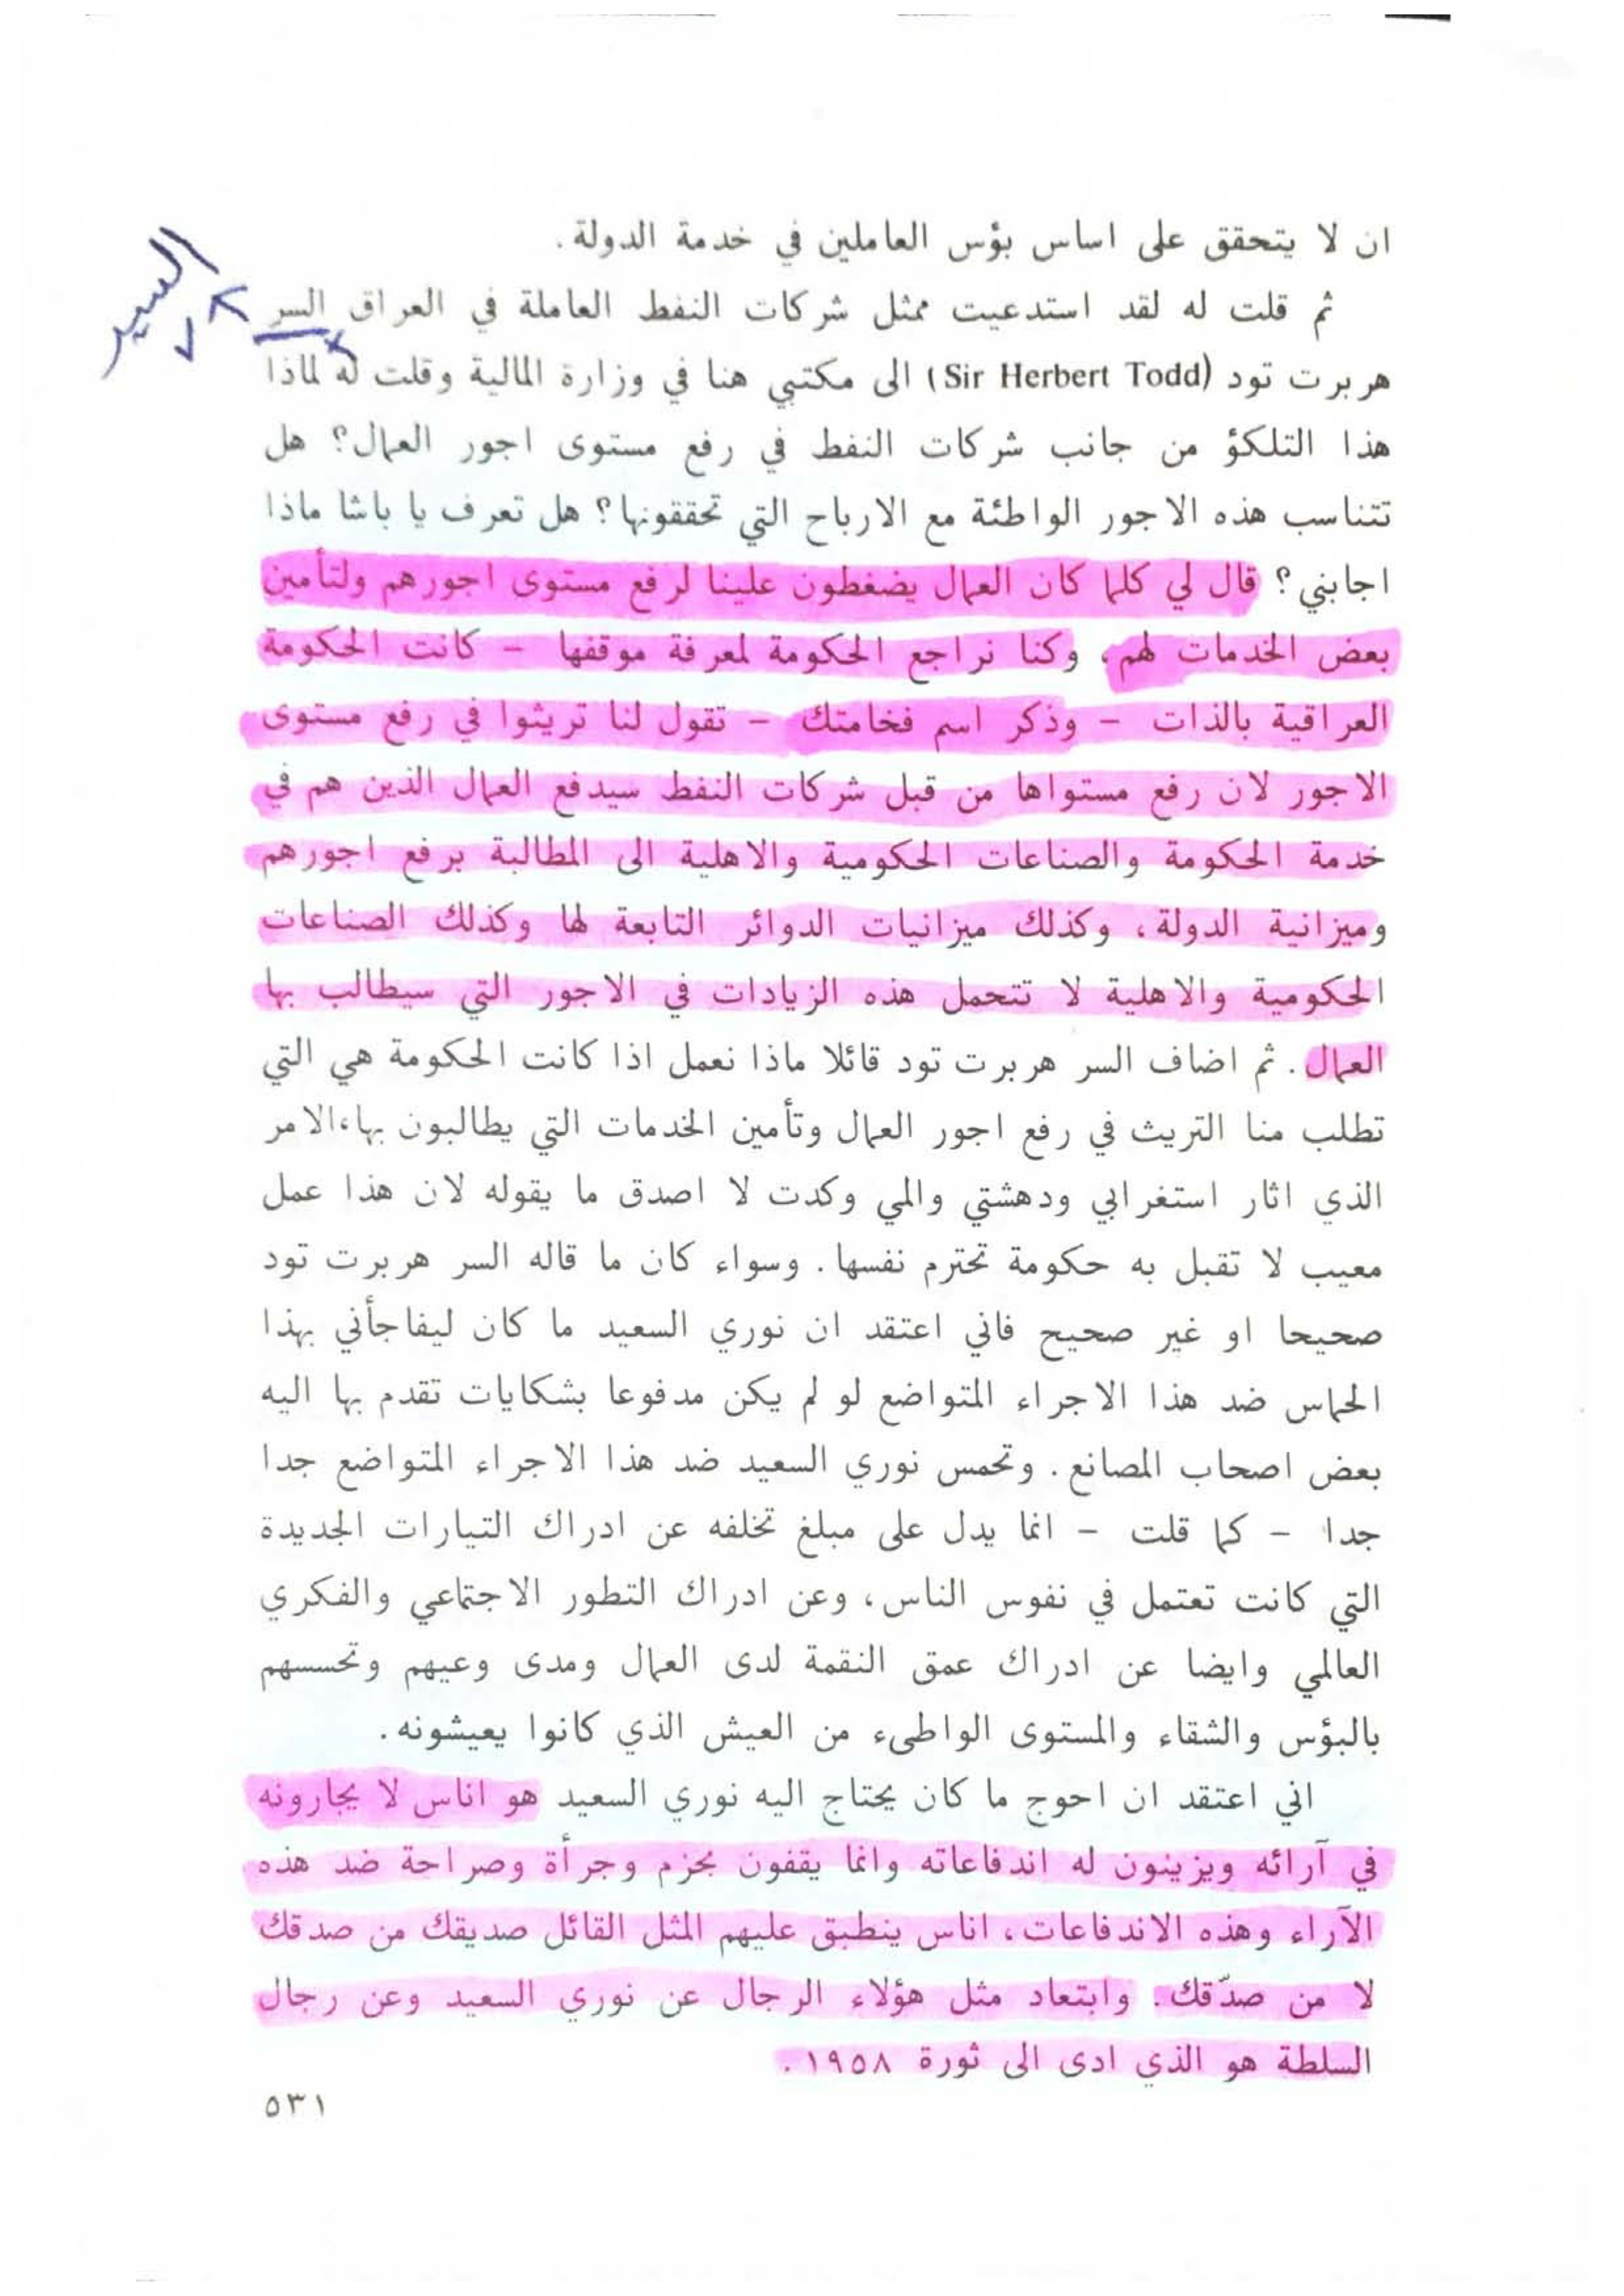 ان لا يتحقق على اساس بؤس العاملين في خدمة الدولة.
ثم قلت له لقد استدعيت ممثل شركات النفط العاملة في العراق السر
السير
هربرت تود (Sir Herbert Todd) الى مكتبي هنا في وزارة المالية وقلت له لماذا
هذا التلكؤ من جانب شركات النفط في رفع مستوى اجور العمال؟ هل
تتناسب هذه الاجور الواطئة مع الارباح التي تحققونها؟ هل تعرف يا باشا ماذا
اجابني؟ قال لي كلما كان العمال يضغطون علينا لرفع مستوى اجورهم ولتأمين
بعض الخدمات لهم، وكنا نراجع الحكومة لمعرفة موقفها – كانت الحكومة
العراقية بالذات – وذكر اسم فخامتك – تقول لنا تريثوا في رفع مستوى
الاجور لان رفع مستواها من قبل شركات النفط سيدفع العمال الذين هم في
خدمة الحكومة والصناعات الحكومية والاهلية الى المطالبة برفع اجورهم
وميزانية الدولة، وكذلك ميزانيات الدوائر التابعة لها وكذلك الصناعات
الحكومية والاهلية لا تتحمل هذه الزيادات في الاجور التي سيطالب بها
العمال. ثم اضاف السر هربرت تود قائلا ماذا نعمل اذا كانت الحكومة هي التي
تطلب منا التريث في رفع اجور العمال وتأمين الخدمات التي يطالبون بها، الامر
الذي اثار استغرابي ودهشتي والمي وكدت لا اصدق ما يقوله لان هذا عمل
معيب لا تقبل به حكومة تحترم نفسها. وسواء كان ما قاله السر هربرت تود
صحيحا او غير صحيح فاني اعتقد ان نوري السعيد ما كان ليفاجأني بهذا
الحماس ضد هذا الاجراء المتواضع لو لم يكن مدفوعا بشكايات تقدم بها اليه
بعض اصحاب المصانع. وتحمس نوري السعيد ضد هذا الاجراء المتواضع جدا
جدا – كما قلت – انما يدل على مبلغ تخلفه عن ادراك التيارات الجديدة
التي كانت تعتمل في نفوس الناس، وعن ادراك التطور الاجتماعي والفكري
العالمي وايضا عن ادراك عمق النقمة لدى العمال ومدى وعيهم وتحسسهم
بالبؤس والشقاء والمستوى الواطىء من العيش الذي كانوا يعيشونه.
اني اعتقد ان احوج ما كان يحتاج اليه نوري السعيد هو اناس لا يجارونه
في آرائه ويزينون له اندفاعاته وانما يقفون بحزم وجرأة وصراحة ضد هذه
الآراء وهذه الاندفاعات، اناس ينطبق عليهم المثل القائل صديقك من صدقك
لا من صدّقك. وابتعاد مثل هؤلاء الرجال عن نوري السعيد وعن رجال
السلطة هو الذي ادى الى ثورة ١٩٥٨.
٥٣١